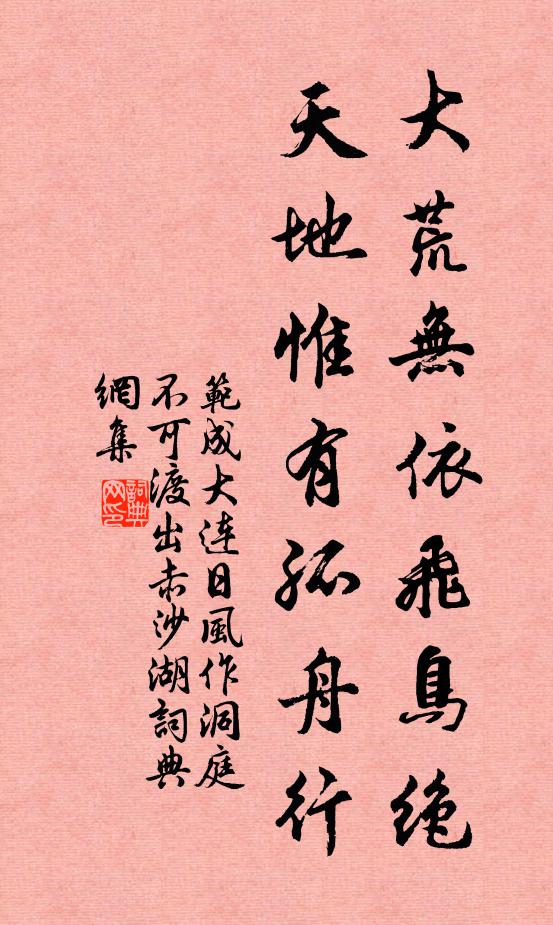 大荒無依飛鳥絶
天地惟有孤舟行
範成大連日風作洞庭
不可渡出赤沙湖詞典
網集
詞典網印